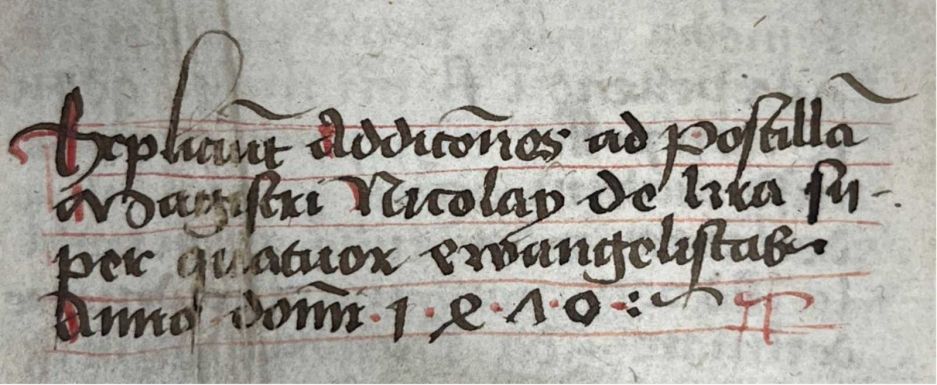 Expliciūt Addicōnes ad Postillā
Magistri Nicolay de lira su-
per quatuor ewangelistas
Anno dom̄i · 1 · 4 · 7 · 0 :